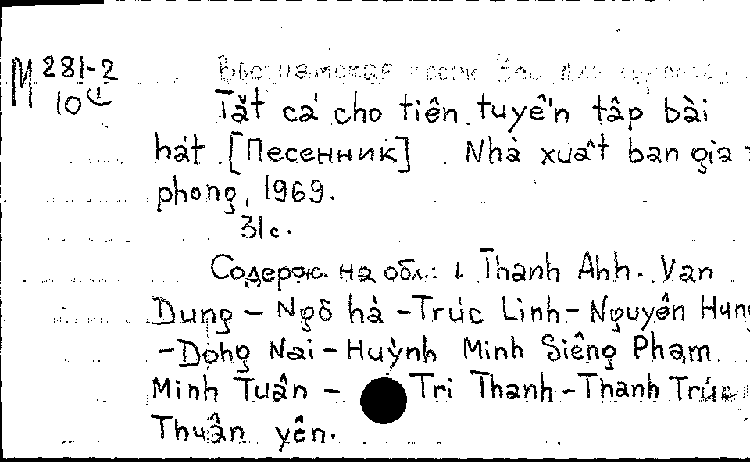 М 281-2
10
Tất cả cho tiên tuyến tâp bài
hát. [Песенник]. Nhà xuất ban gia
phong, 1969.
31с.
Содерж. на обл.: Thanh Anh. Van
Dung - Ngô hà - Trúc Linh - Nguyên Hung
- Dong Nai - Huỳnh Minh Siêng Pham
Minh Tuân - Tri Thanh - Thanh Trúc
Thuân yên.